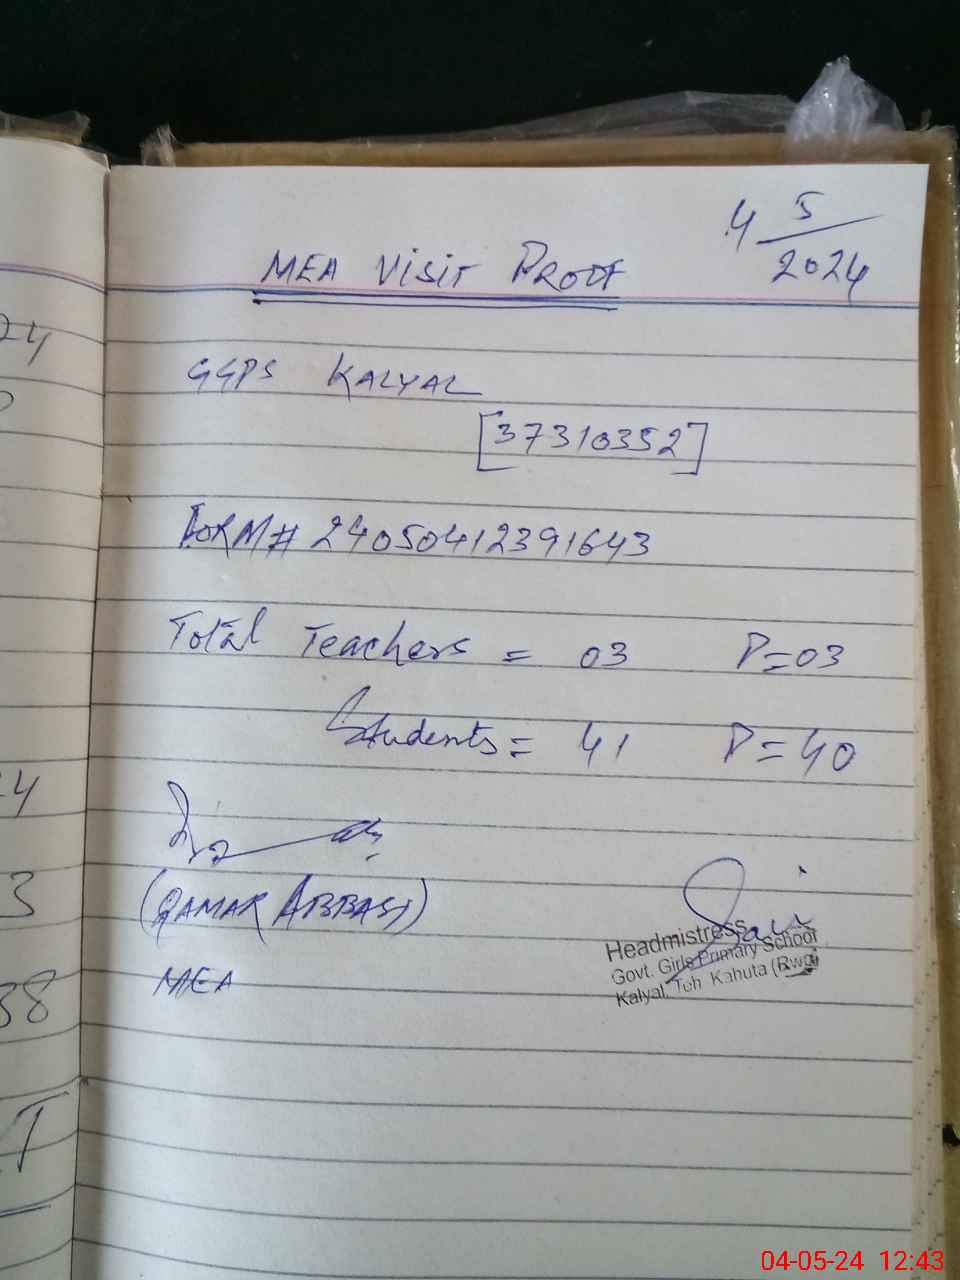 4 5/2024
MEA VISIT PROOF
GGPS KALYAL
[37310352]
FORM# 24050412391643
Total Teachers = 03 P=03
Students = 41 P=40
(QAMAR ABBASI)
MEA
Headmistress
Govt. Girls Primary School
Kalyal, Teh Kahuta (Rwp)
24
4
3
38
T
04-05-24 12:43